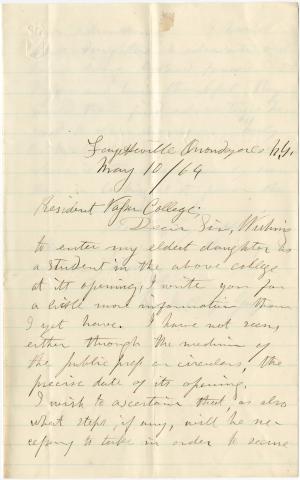 Fayetteville Onondaga Co N.Y.
May 10/64
President Vassar College:
Dear Sir, Wishing
to enter my eldest daughter as
a student in the above college
at its opening, I write you for
a little more information than
I yet have. I have not seen,
either through the medium of
the public press or circulars, the
precise date of its opening.
I wish to ascertain that, as also
what steps, if any, will be nec
essary to take in order to secure